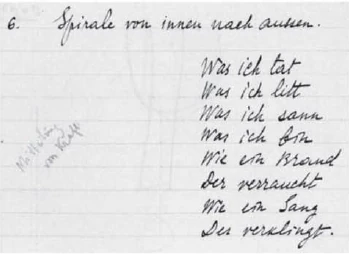 6. Spirale von innen nach aussen.
Was ich tat
Was ich litt
Was ich sann
Was ich bin
Wie ein Brand
Der verraucht
Wie ein Sang
Der verklingt.
von Kraft